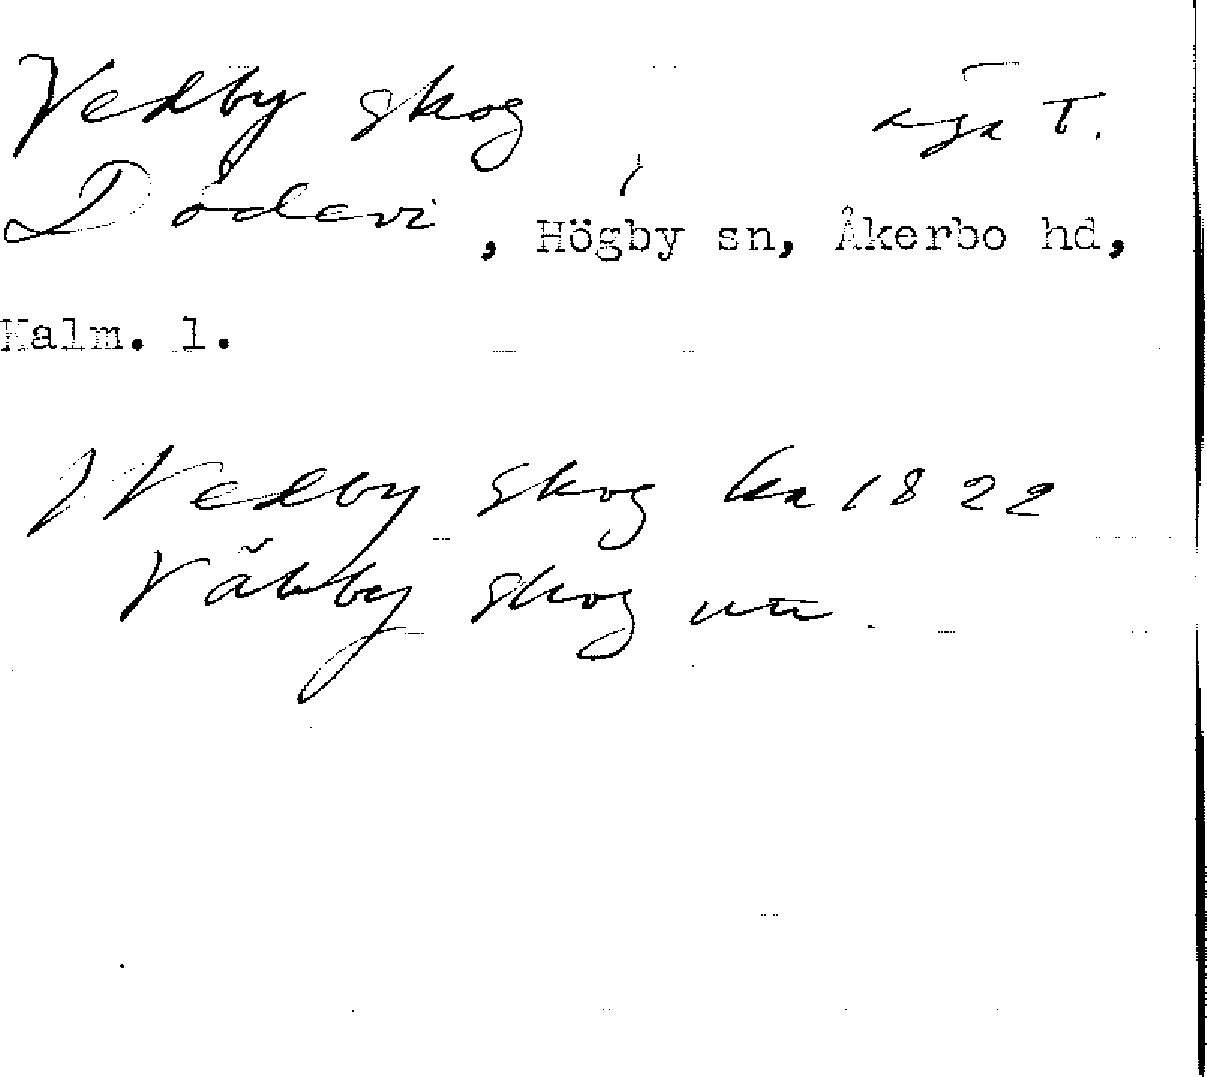 Vedby skog äga T.
Dödevi, Högby sn, Åkerbo hd,
Kalm. l.
Wedby skog ka 1822
Väbby skog utt